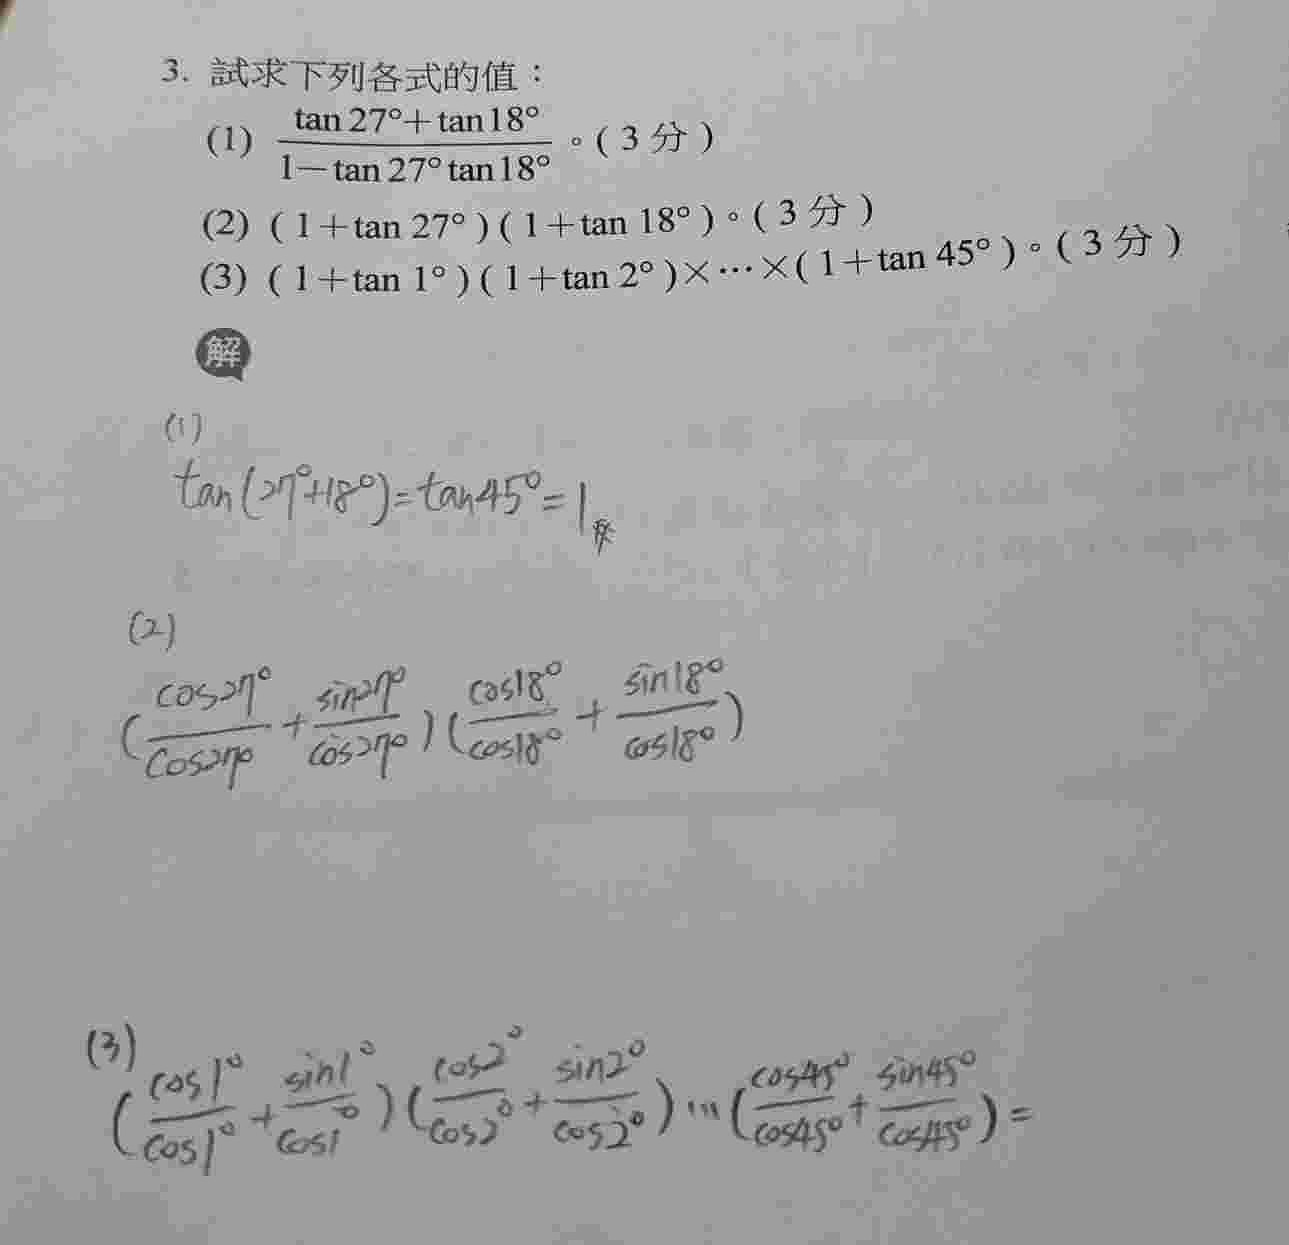 3. 試求下列各式的值：
(1) \frac{tan 27°+tan 18°}{1-tan 27° tan 18°}。( 3 分 )
(2) ( 1+tan 27° )( 1+tan 18° )。( 3 分 )
(3) ( 1+tan 1° )( 1+tan 2° )×⋯×( 1+tan 45° )。( 3 分 )
解
(1)
tan(27°+18°)=tan45°=1
(2)
(\frac{cos27°}{cos27°}+\frac{sin27°}{cos27°})(\frac{cos18°}{cos18°}+\frac{sin18°}{cos18°})
(3)
(\frac{cos1°}{cos1°}+\frac{sin1°}{cos1°})(\frac{cos2°}{cos2°}+\frac{sin2°}{cos2°})…(\frac{cos45°}{cos45°}+\frac{sin45°}{cos45°})=